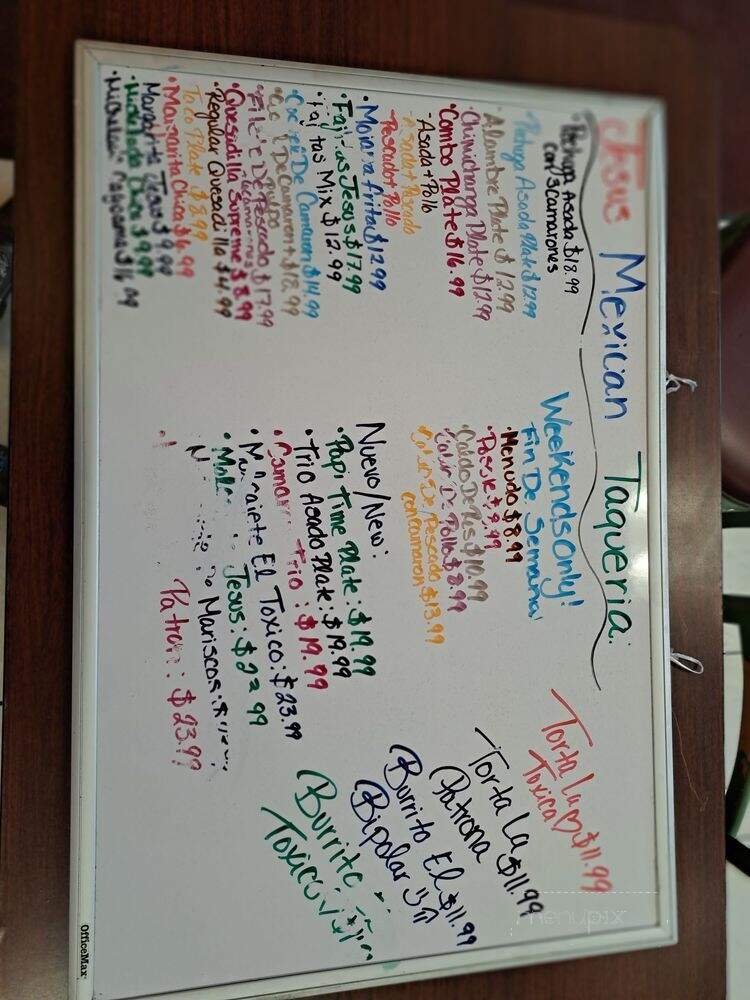 Jesus Mexican Taqueria
• Pechuga Asada $18.99
con 3 camarones
Pechuga Asada Plate $12.99
• Alambre Plate $12.99
• Chimichanga Plate $12.99
• Combo Plate $16.99
Asado + Pollo
Asado + Pescado
Pescado + Pollo
• Mojarra frita $12.99
• Fajitas Jesus $17.99
• Fajitas Mix $12.99
De Camaron $14.99
Pulpo
De Camaron $18.99
De Pescado $17.99
• Quesidilla Supreme $8.99
• Regular Quesadilla $4.99
Taco Plate $8.99
• Margarita Chica $6.99
Margarita Jesus $9.99
$9.99
$16.99
Weekends Only!
Fin De Semana!
• Menudo $8.99
• Posole $9.99
• Caldo De Res $10.99
• Caldo De Pollo $8.99
• Caldo De Pescado $13.99
con camaron
Nuevo/New:
• Papi Time Plate: $19.99
• Trio Asado Plate: $19.99
• Camaron Trio: $19.99
• Molcajete El Toxico: $23.99
Jesus: $22.99
Mariscos:
Patron: $23.99
Torta La
Toxica $11.99
Torta La
Patrona $11.99
Burrito El $11.99
Bipolar
Burrito
Toxico
menupix
OfficeMax